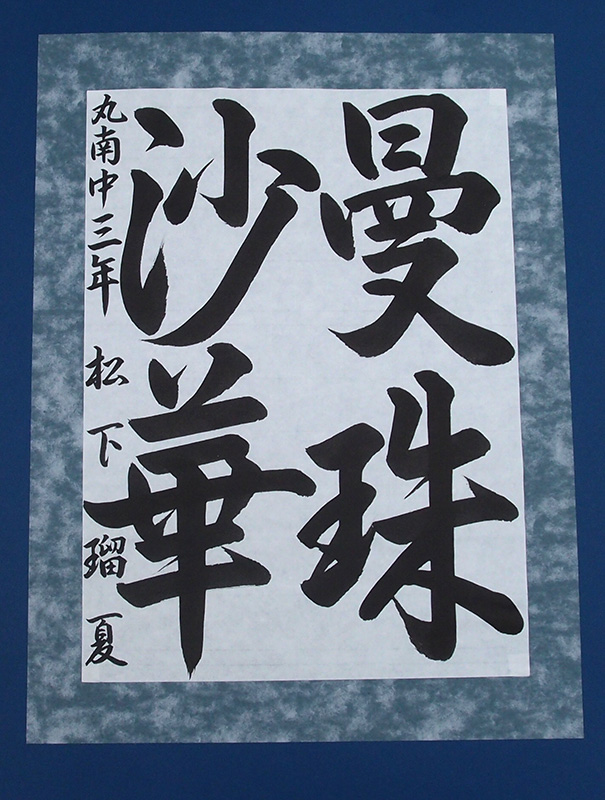 曼珠
沙華
丸南中三年 松下瑠夏